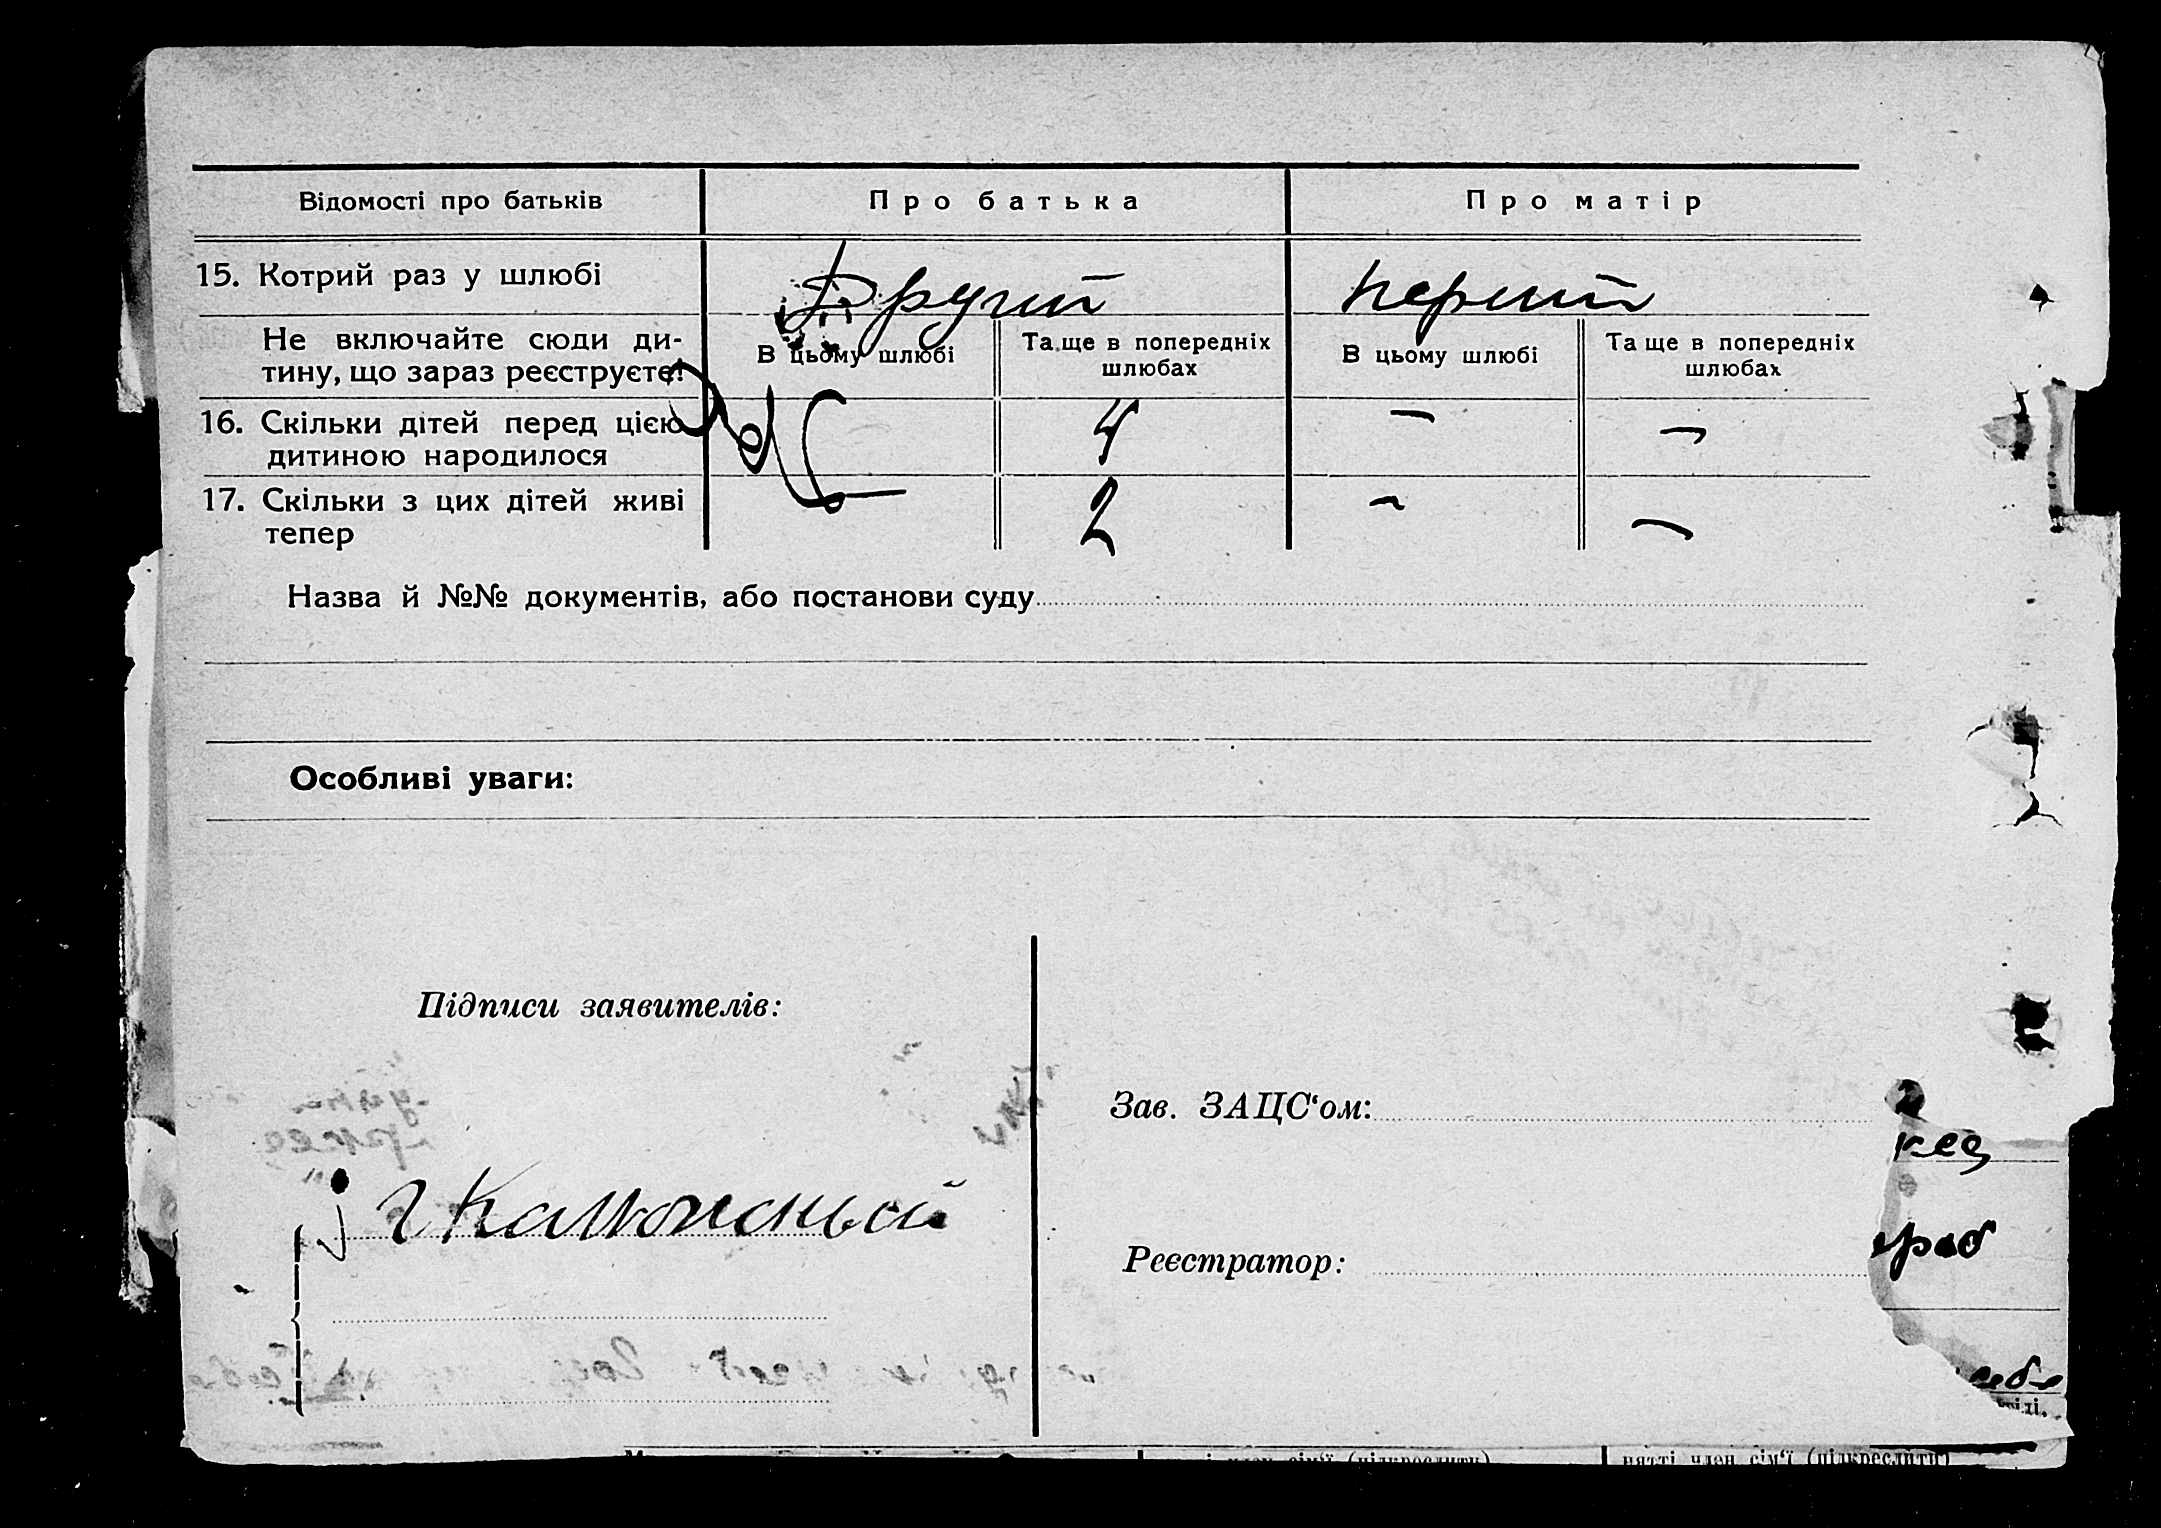 Відомості про батьків
Про батька
Про матір
15. Котрий раз у шлюбі
Другий
перший
Не включайте сюди ди-
тину, що зараз реєструєте!
В цьому шлюбі
Та ще в попередніх
шлюбах
В цьому шлюбі
Та ще в попередніх
шлюбах
16. Скільки дітей перед цією
дитиною народилося
4
–
–
17. Скільки з цих дітей живі
тепер
–
2
–
–
Назва й №№ документів, або постанови суду
Особливі уваги:
Підписи заявителів:
Зав. ЗАЦС‘ом:
Реєстратор:
член сім'ї (підкреслити)
нятті член сім'ї (підкреслити)